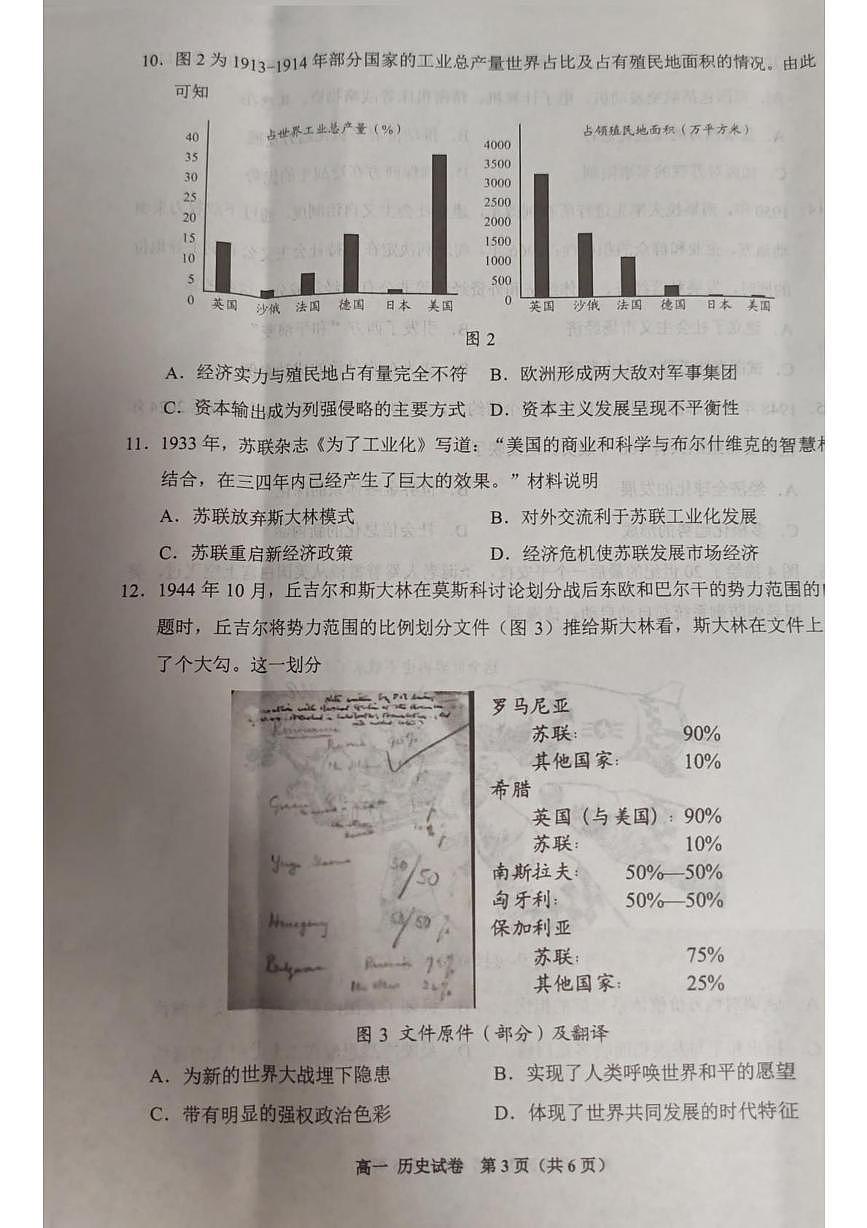 10. 图 2 为 1913-1914 年部分国家的工业总产量世界占比及占有殖民地面积的情况。由此
可知
占世界工业总产量(%)
40
35
30
25
20
15
10
5
0
英国 沙俄 法国 德国 日本 美国
占领殖民地面积(万平方米)
4000
3500
3000
2500
2000
1500
1000
500
0
英国 沙俄 法国 德国 日本 美国
图 2
A. 经济实力与殖民地占有量完全不符 B. 欧洲形成两大敌对军事集团
C. 资本输出成为列强侵略的主要方式 D. 资本主义发展呈现不平衡性
11. 1933 年,苏联杂志《为了工业化》写道:“美国的商业和科学与布尔什维克的智慧
结合,在三四年内已经产生了巨大的效果。”材料说明
A. 苏联放弃斯大林模式 B. 对外交流利于苏联工业化发展
C. 苏联重启新经济政策 D. 经济危机使苏联发展市场经济
12. 1944 年 10 月,丘吉尔和斯大林在莫斯科讨论划分战后东欧和巴尔干的势力范围的
题时,丘吉尔将势力范围的比例划分文件(图 3)推给斯大林看,斯大林在文件上
了个大勾。这一划分
50/50
50/50
罗马尼亚
苏联: 90%
其他国家: 10%
希腊
英国(与美国): 90%
苏联: 10%
南斯拉夫: 50%—50%
匈牙利: 50%—50%
保加利亚
苏联: 75%
其他国家: 25%
图 3 文件原件(部分)及翻译
A. 为新的世界大战埋下隐患 B. 实现了人类呼唤世界和平的愿望
C. 带有明显的强权政治色彩 D. 体现了世界共同发展的时代特征
高一 历史试卷 第 3 页(共 6 页)